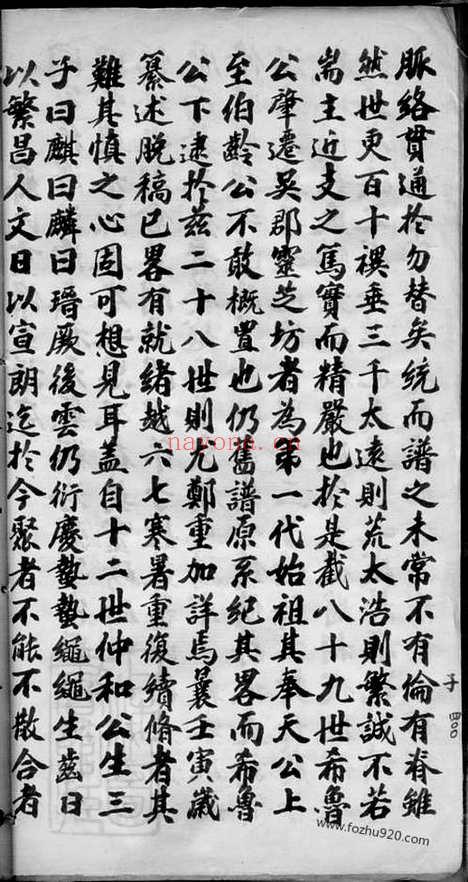 脈絡貫通於勿替矣統而譜之未常不有倫有脊雖
然世更百十禩垂三千太遠則荒太浩則繁誠不若
耑主近支之篤實而精嚴也於是截八十九世希魯
公肇遷吳郡靈芝坊者為第一代始祖其奉天公上
至伯齡公不敢概置也仍舊譜原系紀其畧而希魯
公下逮於茲二十八世則尤鄭重加詳焉曩壬寅歲
纂述脫稿已畧有就緒越六七寒暑重復續脩者其
難其慎之心固可想見耳蓋自十二世仲和公生三
子曰麒曰麟曰瑨厥後雲仍衍慶蟄蟄繩繩生齒日
以繁昌人文日以宣朗迄於今聚者不能不散合者
子 四〇〇
nayona.cn
www.fozhu920.com